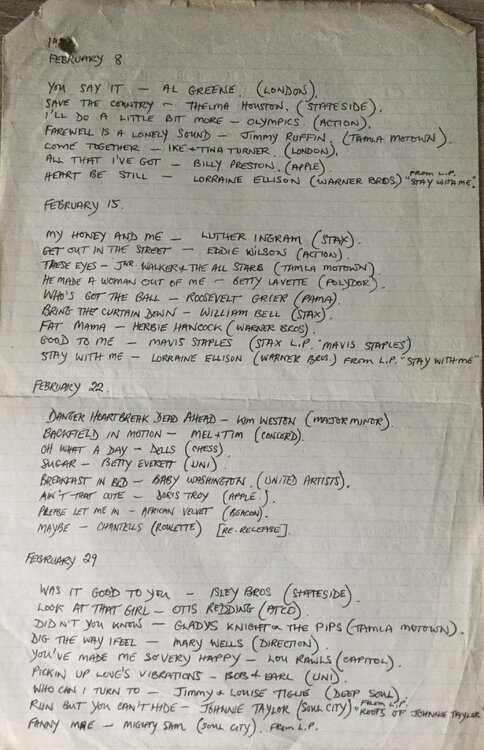 FEBRUARY 8
YOU SAY IT – AL GREENE. (LONDON).
SAVE THE COUNTRY – THELMA HOUSTON. (STATESIDE).
I'LL DO A LITTLE BIT MORE – OLYMPICS. (ACTION).
FAREWELL IS A LONELY SOUND – JIMMY RUFFIN. (TAMLA MOTOWN).
COME TOGETHER – IKE + TINA TURNER. (LONDON).
ALL THAT I'VE GOT – BILLY PRESTON. (APPLE).
HEART BE STILL – LORRAINE ELLISON (WARNER BROS.) FROM L.P. "STAY WITH ME".
FEBRUARY 15.
MY HONEY AND ME – LUTHER INGRAM (STAX).
GET OUT IN THE STREET – EDDIE WILSON (ACTION).
THESE EYES – JNR. WALKER + THE ALL STARS (TAMLA MOTOWN).
HE MADE A WOMAN OUT OF ME – BETTY LAVETTE (POLYDOR).
WHO'S GOT THE BALL – ROOSEVELT GRIER (PAMA).
BRING THE CURTAIN DOWN – WILLIAM BELL (STAX).
FAT MAMA – HERBIE HANCOCK (WARNER BROS).
GOOD TO ME – MAVIS STAPLES (STAX L.P. "MAVIS STAPLES)
STAY WITH ME – LORRAINE ELLISON (WARNER BROS.) FROM L.P. "STAY WITH ME"
FEBRUARY 22.
DANGER HEARTBREAK DEAD AHEAD – KIM WESTON (MAJOR MINOR).
BACKFIELD IN MOTION – MEL + TIM (CONCORD).
OH WHAT A DAY – DELLS (CHESS).
SUGAR – BETTY EVERETT (UNI)
BREAKFAST IN BED – BABY WASHINGTON. (UNITED ARTISTS).
AIN'T THAT CUTE – DORIS TROY (APPLE.)
PLEASE LET ME IN – AFRICAN VELVET (BEACON).
MAYBE – CHANTELLS (ROULETTE) [RE-RELEASE].
FEBRUARY 29
WAS IT GOOD TO YOU – ISLEY BROS (STATESIDE).
LOOK AT THAT GIRL – OTIS REDDING (ATCO).
DIDN'T YOU KNOW – GLADYS KNIGHT + THE PIPS (TAMLA MOTOWN).
DIG THE WAY I FEEL – MARY WELLS (DIRECTION).
YOU'VE MADE ME SO VERY HAPPY – LOU RAWLS (CAPITOL).
PICKIN UP LOVE'S VIBRATIONS – BOB + EARL (UNI).
WHO CAN I TURN TO – JIMMY + LOUISE TIGUE (DEEP SOUL).
RUN BUT YOU CAN'T HIDE – JOHNNIE TAYLOR (SOUL CITY) FROM L.P. "ROOTS OF JOHNNIE TAYLOR"
FANNY MAE – MIGHTY SAM (SOUL CITY). FROM L.P.